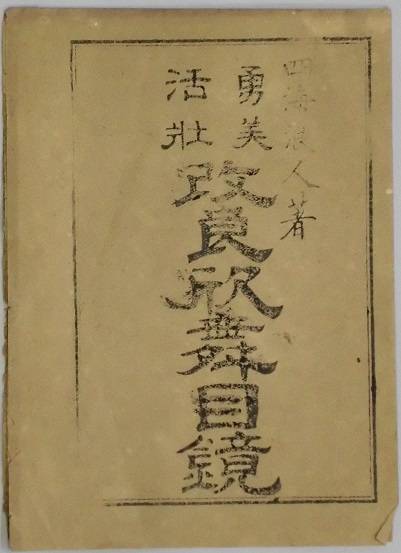 四海浪人著
勇美
活壯
改良欣舞目鏡